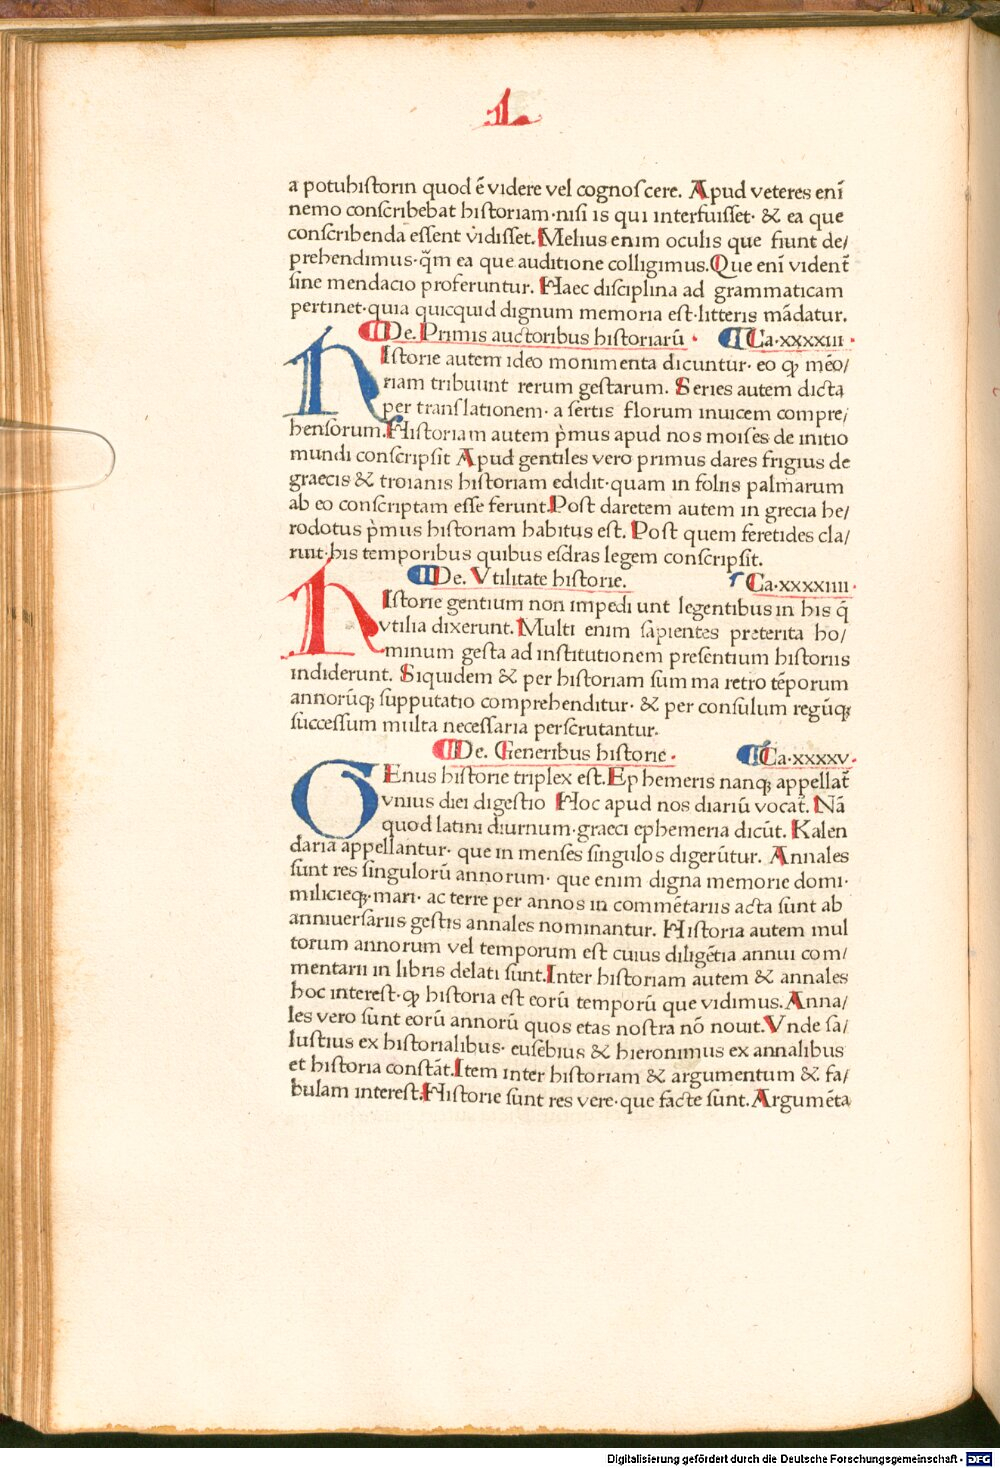 1
a potuhiſtorin quod ē videre vel cognoſcere. Apud veteres enī
nemo conſcribebat hiſtoriam·niſi is qui interfuiſſet· & ea que
conſcribenda eſſent vidiſſet. Melius enim oculis que fiunt de/
prehendimus·q̄m ea que auditione colligimus. Que enī vident̄
ſine mendacio proferuntur. Haec diſciplina ad grammaticam
pertinet·quia quicquid dignum memoria eſt·litteris mādatur.
De. Primis auctoribus hiſtoriarū · Ca·xxxxiii·
HIſtorie autem ideo monimenta dicuntur· eo ꝙ mēo/
riam tribuunt rerum geſtarum. Series autem dicta
per tranſlationem· a ſertis florum inuicem compre/
henſorum. Hiſtoriam autem p̀mus apud nos moiſes de initio
mundi conſcripſit Apud gentiles vero primus dares frigius de
graecis & troianis hiſtoriam edidit·quam in foliis palmarum
ab eo conſcriptam eſſe ferunt. Poſt daretem autem in grecia he/
rodotus p̀mus hiſtoriam habitus eſt. Poſt quem feretides cla/
ruit·his temporibus quibus eſdras legem conſcripſit.
De. Vtilitate hiſtorie. Ca·xxxxiiii·
HIſtorie gentium non impedi unt legentibus in his q̄
vtilia dixerunt. Multi enim ſapientes preterita ho/
minum geſta ad inſtitutionem preſentium hiſtoriis
indiderunt. Siquidem & per hiſtoriam ſum ma retro tēporum
annorūq; ſupputatio comprehenditur· & per conſulum regūq;
ſucceſſum multa neceſſaria perſcrutantur.
De. Generibus hiſtorie· Ca·xxxxv·
GEnus hiſtorie triplex eſt. Ep hemeris nanq; appellat̄
vnius diei digeſtio Hoc apud nos diariū vocat̄. Nā
quod latini diurnum·graeci ephemeria dicūt. Kalen
daria appellantur· que in menſes ſingulos digerūtur. Annales
ſunt res ſingulorū annorum· que enim digna memorie domi·
milicieq;·mari· ac terre per annos in commētariis acta ſunt ab
anniuerſariis geſtis annales nominantur. Hiſtoria autem mul
torum annorum vel temporum eſt cuius diligētia annui com/
mentarii in libris delati ſunt. Inter hiſtoriam autem & annales
hoc intereſt·ꝙ hiſtoria eſt eorū temporū que vidimus. Anna/
les vero ſunt eorū annorū quos etas noſtra nō nouit. Vnde ſa/
luſtius ex hiſtorialibus· euſebius & hieronimus ex annalibus
et hiſtoria conſtāt. Item inter hiſtoriam & argumentum & fa/
bulam intereſt. Hiſtorie ſunt res vere·que facte ſunt. Argumēta
Digitalisierung gefördert durch die Deutsche Forschungsgemeinschaft - DFG